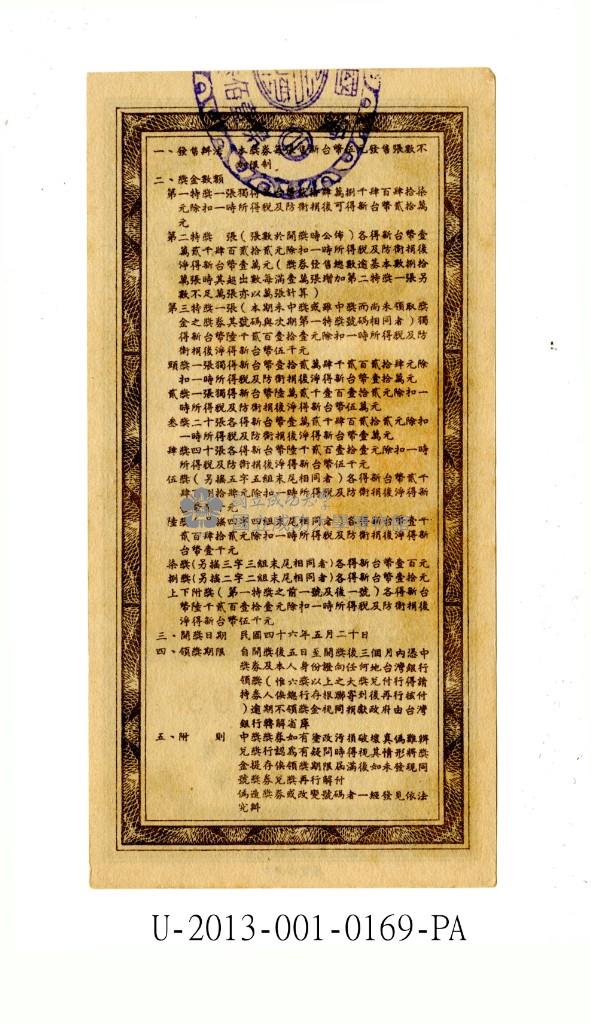 一、發售辦法 本獎券每張售新台幣伍元發售張數不
限制
二、獎金數額
第一特獎一張獨得新台幣貳拾肆萬捌千肆百肆拾柒
元除扣一時所得稅及防衛捐後可得新台幣貳拾萬
元
第二特獎 張(張數於開獎時公佈)各得新台幣壹
萬貳千肆百貳拾貳元除扣一時所得稅及防衛捐後
淨得新台幣壹萬元(獎券發售總數逾基本數捌拾
萬張時其超出數每滿壹萬張增加第二特獎一張另
數不足萬張亦以萬張計算)
第三特獎一張(本期未中獎或雖中獎而尚未領取獎
金之獎券其號碼與次期第一特獎號碼相同者)獨
得新台幣陸千貳百壹拾壹元除扣一時所得稅及防
衛捐後淨得新台幣伍千元
頭獎一張獨得新台幣壹拾貳萬肆千貳百貳拾肆元除
扣一時所得稅及防衛捐後淨得新台幣壹拾萬元
貳獎一張獨得新台幣陸萬貳千壹百壹拾貳元除扣一
時所得稅及防衛捐後淨得新台幣伍萬元
叁獎二十張各得新台幣壹萬貳千肆百貳拾貳元除扣
一時所得稅及防衛捐後淨得新台幣壹萬元
肆獎四十張各得新台幣陸千貳百壹拾壹元除扣一時
所得稅及防衛捐後淨得新台幣伍千元
伍獎(另搖五字五組末尾相同者)各得新台幣貳千
肆百捌拾肆元除扣一時所得稅及防衛捐後淨得新
台幣貳千元
陸獎(另搖四字四組末尾相同者)各得新台幣壹千
貳百肆拾貳元除扣一時所得稅及防衛捐後淨得新
台幣壹千元
柒獎(另搖三字三組末尾相同者)各得新台幣壹百元
捌獎(另搖二字二組末尾相同者)各得新台幣拾元
上下附獎(第一特獎之前一號及後一號)各得新台
幣陸千貳百壹拾壹元除扣一時所得稅及防衛捐後
淨得新台幣伍千元
三、開獎日期 民國四十六年五月二十日
四、領獎期限 自開獎後五日至開獎後三個月內憑中
獎券及本人身份證向任何地台灣銀行
領獎(惟六獎以上之大獎兌付行得請
持券人俟總行存根聯寄到後再行核付
)逾期不領獎金視同捐獻政府由台灣
銀行轉解省庫
五、附 則 中獎獎券如有塗改污損破壞真偽難辨
兌獎行認為有疑問時得視其情形將獎
金提存俟領獎期限屆滿後如未發現同
號獎券兌獎再行解付
偽造獎券或改變號碼者一經發見依法
究辦
國立成功大學
國立成功大學博物館
U-2013-001-0169-PA